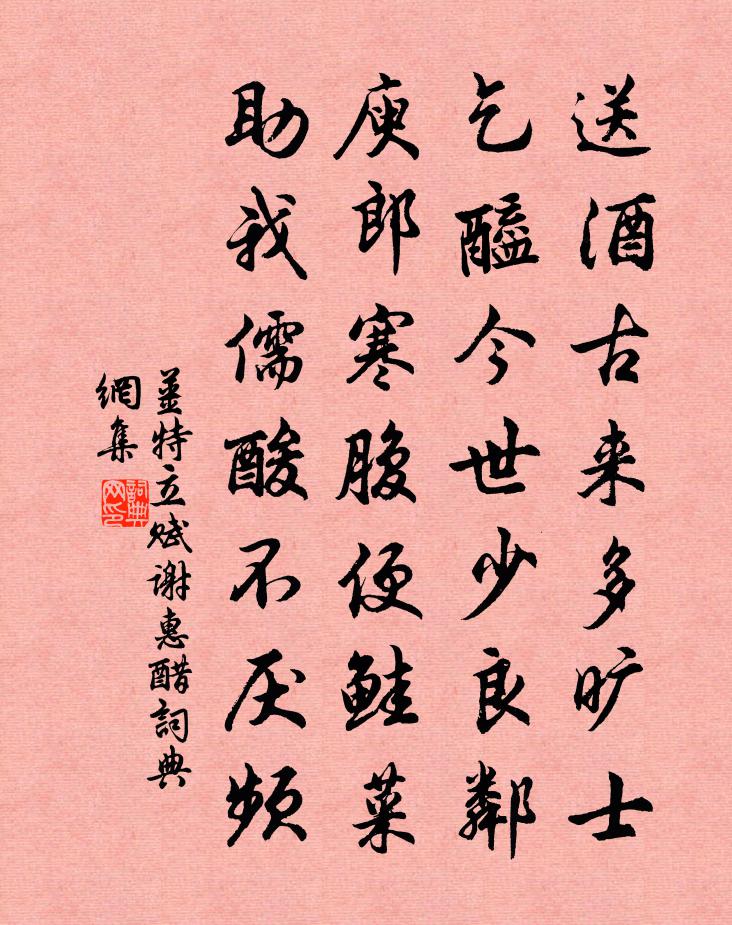 送酒古来多旷士
乞醯今世少良鄰
庾郎寒腹便鲑菜
助我儒酸不厌频
姜特立赋谢惠醋詞典
網集
詞典网印